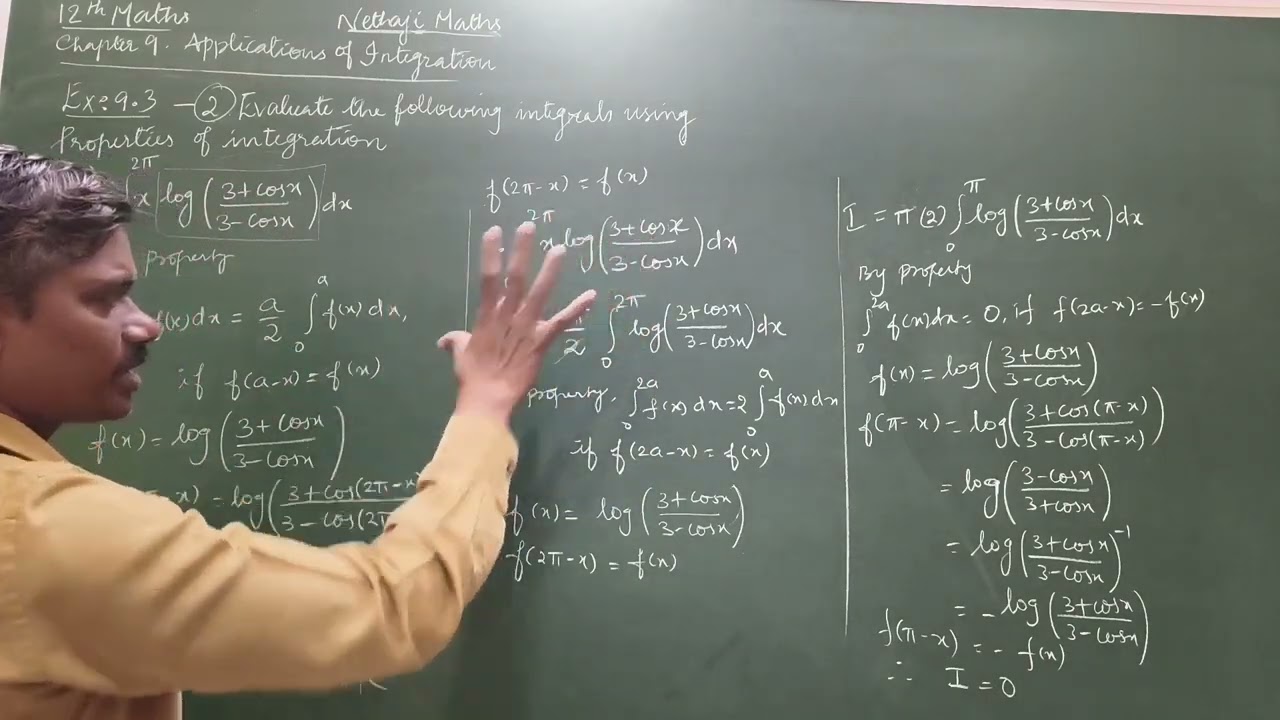 12th Maths Nethaji Maths
Chapter 9. Applications of Integration
Ex: 9.3 - ② Evaluate the following integrals using
Properties of integration
2π
x log(3+cosx/3-cosx)dx
property
f(x)dx = a/2 ∫₀ᵃ f(x)dx,
if f(a-x) = f(x)
f(x) = log(3+cosx/3-cosx)
-x) = log(3+cos(2π-x)/3-cos(2π
f(2π-x) = f(x)
2π x log(3+cosx/3-cosx)dx
π/2 ∫₀^2π log(3+cosx/3-cosx)dx
property. ∫₀^2a f(x)dx=2∫₀ᵃ f(x)dx
if f(2a-x) = f(x)
f(x) = log(3+cosx/3-cosx)
f(2π-x) = f(x)
I = π(2)∫₀^π log(3+cosx/3-cosx)dx
By property
∫₀^2a f(x)dx = 0, if f(2a-x) = -f(x)
f(x) = log(3+cosx/3-cosx)
f(π-x) = log(3+cos(π-x)/3-cos(π-x))
= log(3-cosx/3+cosx)
= log(3+cosx/3-cosx)⁻¹
= -log(3+cosx/3-cosx)
f(π-x) = - f(x)
∴ I = 0